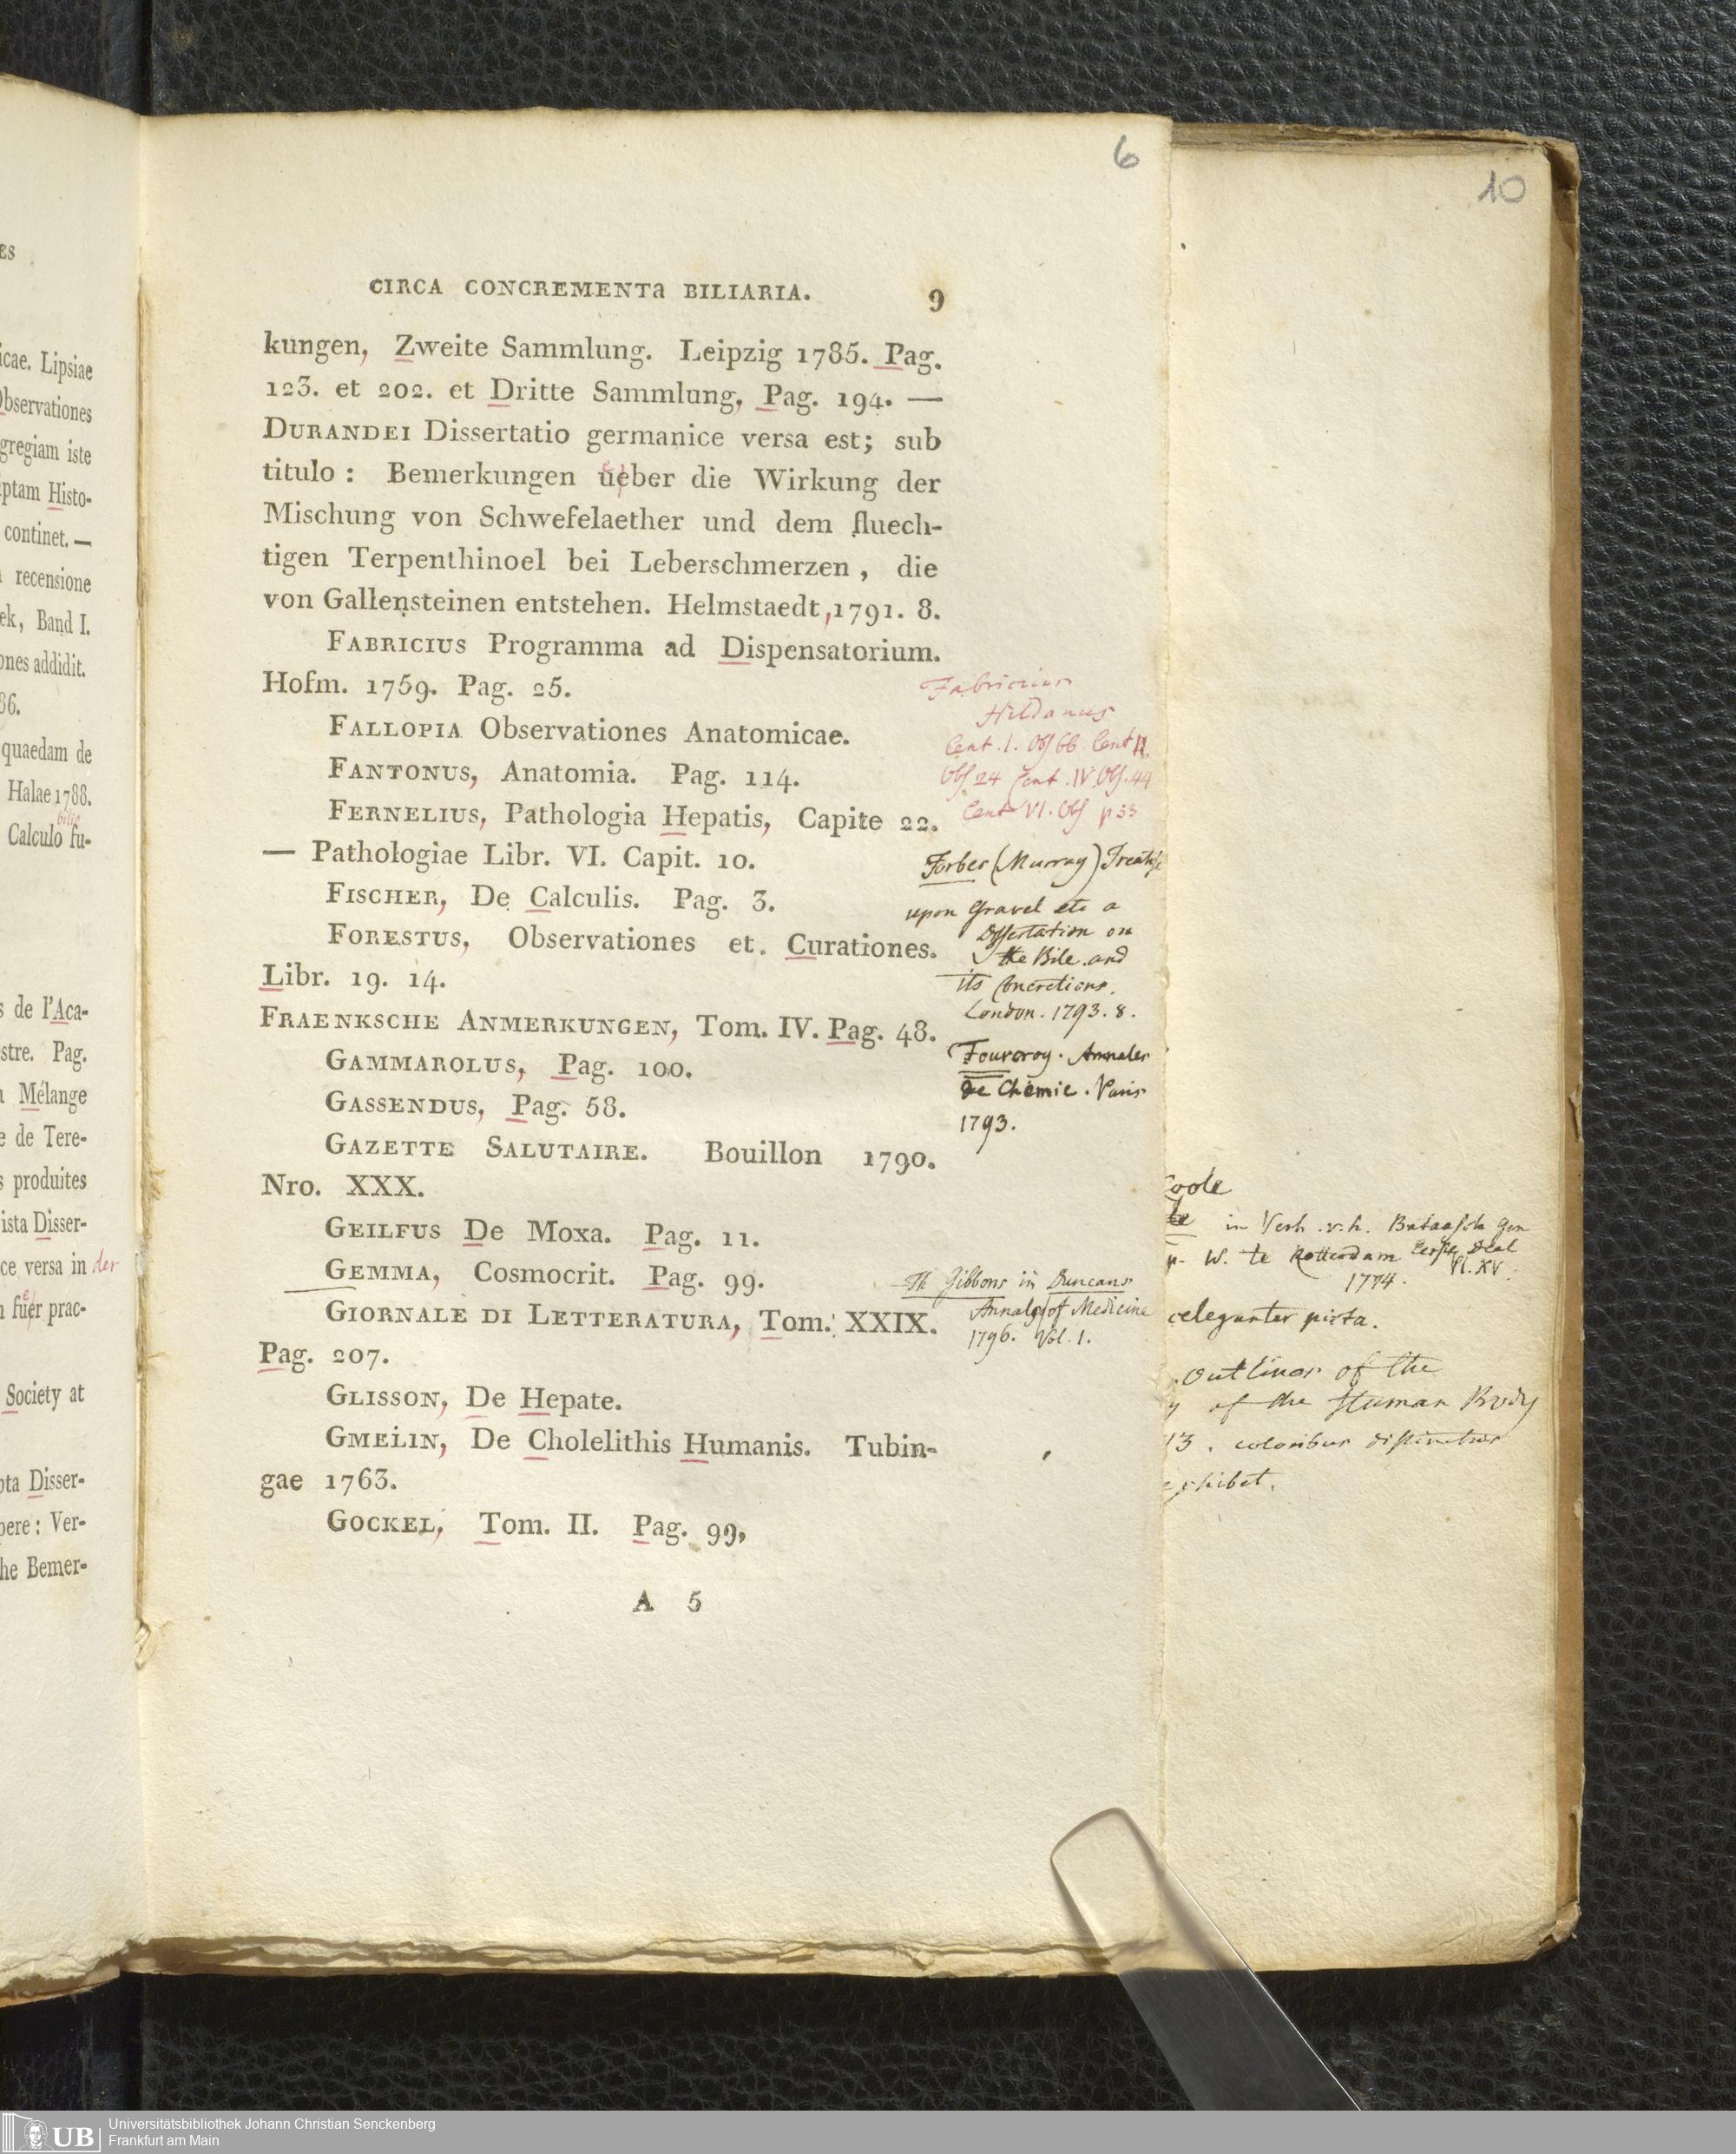 es
icae. Lipsiae
Observationes
gregiam iste
iptam Histo-
continet. —
recensione
ek, Band I.
ones addidit.
86.
quaedam de
Halae 1788.
Calculo fu-
s de l'Aca-
stre. Pag.
Mélange
e de Tere-
s produites
ista Disser-
ce versa in der
fuer prac-
Society at
pta Disser-
pere: Ver-
he Bemer-
6
CIRCA CONCREMENTa BILIARIA. 9
kungen, Zweite Sammlung. Leipzig 1785. Pag.
123. et 202. et Dritte Sammlung, Pag. 194. —
DURANDEI Dissertatio germanice versa est; sub
titulo: Bemerkungen ueber die Wirkung der
Mischung von Schwefelaether und dem fluech-
tigen Terpenthinoel bei Leberschmerzen, die
von Gallensteinen entstehen. Helmstaedt, 1791. 8.
FABRICIUS Programma ad Dispensatorium.
Hofm. 1759. Pag. 25.
FALLOPIA Observationes Anatomicae.
FANTONUS, Anatomia. Pag. 114.
FERNELIUS, Pathologia Hepatis, Capite 22.
— Pathologiae Libr. VI. Capit. 10.
FISCHER, De Calculis. Pag. 3.
FORESTUS, Observationes et. Curationes.
Libr. 19. 14.
FRAENKSCHE ANMERKUNGEN, Tom. IV. Pag. 48.
GAMMAROLUS, Pag. 100.
GASSENDUS, Pag. 58.
GAZETTE SALUTAIRE. Bouillon 1790.
Nro. XXX.
GEILFUS De Moxa. Pag. 11.
GEMMA, Cosmocrit. Pag. 99.
GIORNALE DI LETTERATURA, Tom. XXIX.
Pag. 207.
GLISSON, De Hepate.
GMELIN, De Cholelithis Humanis. Tubin-
gae 1763.
GOCKEL, Tom. II. Pag. 99,
A 5
Fabricius
Hildanus
Cent. I. Obs 66. Cent II.
Obs 24 Cent. IV. Obs. 44
Cent VI. Obs p 33
Forbes (Murray) Treatise
upon Gravel etc a
Dissertation on
the Bile and
its Concretions.
London. 1793. 8.
Fourcroy. Annales
de Chemie. Paris
1793.
Th. Gibbons in Duncans
Annals of Medicine
1796. Vol. 1.
10
Coole
in Verh. v. h. Bataafsch Gen
W. te Rotterdam Eerste Deel
1774. Pl. XV.
eleganter picta.
Outlines of the
of the Human Body
13. coloribus distinctus
exhibet.
Universitätsbibliothek Johann Christian Senckenberg
Frankfurt am Main
UB